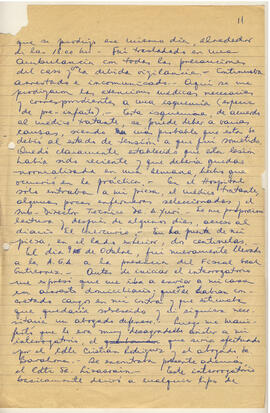 11
que se produjo ese mismo día, alrededor
de las 18.00 hrs. - Fui trasladado en una
Ambulancia con todas las precauciones
del caso y la debida vigilancia. - Continuaba
arrestado e incomunicado. - Aquí se me
prodigaron las atenciones médicas necesarias
y correspondientes a una isquemia (especie
de pre-infarto). - Esta isquemia, de acuerdo
al médico tratante, se puede deber a varias
causas, siendo más probable que esta se
debió al estado de tensión a que fui sometido.
Quedó claramente establecido que esta lesión
había sido reciente y que debería quedar
normalizada en una semana, hecho que
ocurrió en la práctica. - En el Hospital
solo entraban a mi pieza, el médico tratante,
algunas pocas enfermeras seleccionadas, y el
sub-Director Técnico de la
lectura, y después de algunos días, acceso al
diario "El Mercurio". - En la puerta de mi
pieza, en el lado exterior, dos centinelas.
El día de Octubre, fui nuevamente llevado
a la AGA a la presencia del Fiscal Gral
Gutierrez. - Antes de iniciar el interrogatorio
me expresó que me iba a enviar a mi casa
en arresto domiciliario; que
cargos en mi contra y que estimaba
que quedaría sobreseído y ni siquiera nece-
sitaría un abogado defensor. Luego me mani-
festó que le era muy desagradable
interrogatorio, el que sería efectuado
por el Cdte Cristian Rodriguez, y el abogado Sr
Barahona. - Se encontraba presente además
el Cdte Sr. Lizasoain. - Este interrogatorio
básicamente derivó a cualquier tipo de